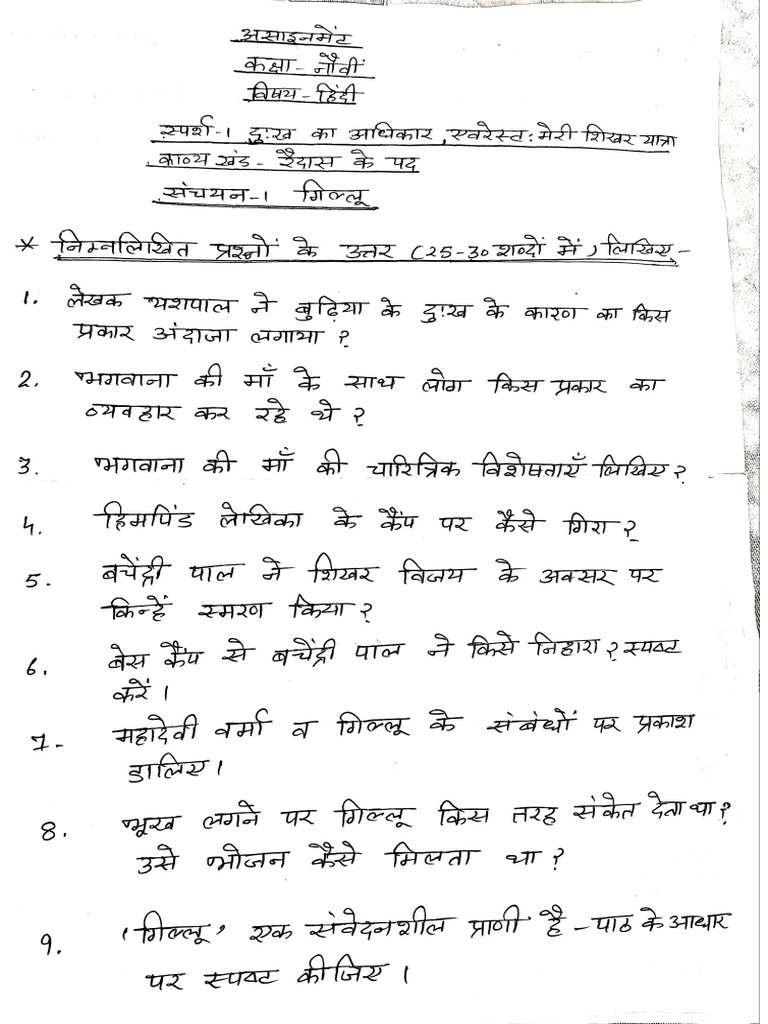 असाइनमेंट
कक्षा - नौवीं
विषय - हिंदी
स्पर्श-1 दुःख का अधिकार, एवरेस्ट: मेरी शिखर यात्रा
काव्य खंड - रैदास के पद
संचयन-1 गिल्लू
* निम्नलिखित प्रश्नों के उत्तर (25-30 शब्दों में) लिखिए -
1. लेखक यशपाल ने बुढ़िया के दुःख के कारण का किस
प्रकार अंदाजा लगाया ?
2. भगवाना की माँ के साथ लोग किस प्रकार का
व्यवहार कर रहे थे ?
3. भगवाना की माँ की चारित्रिक विशेषताएँ लिखिए ?
4. हिमपिंड लेखिका के कैंप पर कैसे गिरा ?
5. बचेंद्री पाल ने शिखर विजय के अवसर पर
किन्हें स्मरण किया ?
6. बेस कैंप से बचेंद्री पाल ने किसे निहारा ? स्पष्ट
करें ।
7- महादेवी वर्मा व गिल्लू के संबंधों पर प्रकाश
डालिए ।
8. भूख लगने पर गिल्लू किस तरह संकेत देता था ?
उसे भोजन कैसे मिलता था ?
9. 'गिल्लू' एक संवेदनशील प्राणी है - पाठ के आधार
पर स्पष्ट कीजिए ।